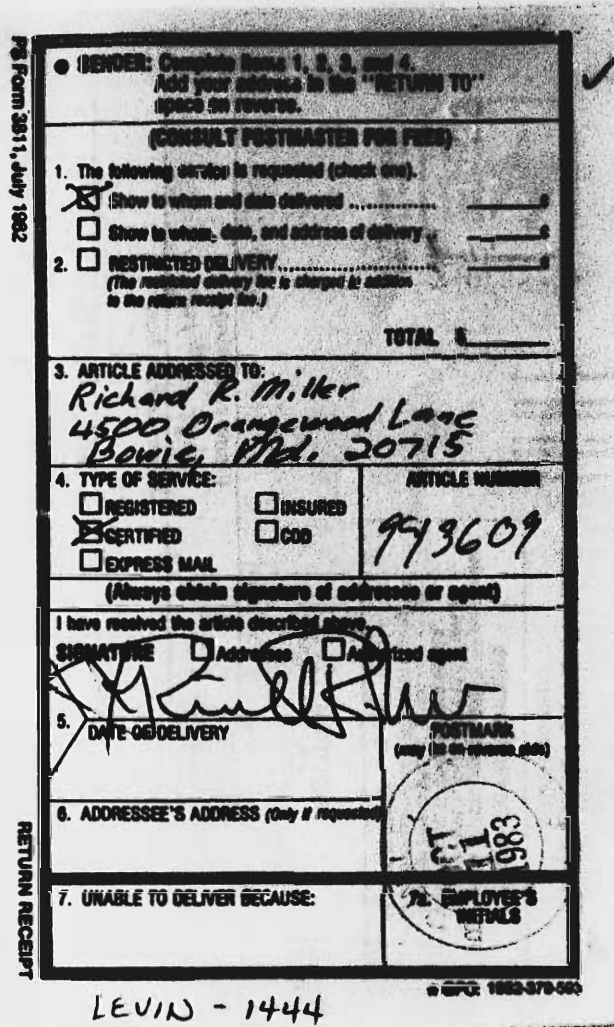 PS Form 3811, July 1982
● SENDER: Complete items 1, 2, 3, and 4.
Add your address in the "RETURN TO"
space on reverse.
(CONSULT POSTMASTER FOR FEES)
1. The following service is requested (check one).
☒ Show to whom and date delivered .............. ¢
☐ Show to whom, date, and address of delivery .. ¢
2. ☐ RESTRICTED DELIVERY........................ ¢
(The restricted delivery fee is charged in addition
to the return receipt fee.)
TOTAL $
3. ARTICLE ADDRESSED TO:
Richard R. Miller
4500 Orangewood Lane
Bowie, Md. 20715
4. TYPE OF SERVICE:
☐ REGISTERED ☐ INSURED
☒ CERTIFIED ☐ COD
☐ EXPRESS MAIL
ARTICLE NUMBER
9943609
(Always obtain signature of addressee or agent)
I have received the article described above.
SIGNATURE ☐ Addressee ☐ Authorized agent
5.
DATE OF DELIVERY
POSTMARK
(may be on reverse side)
11
1983
6. ADDRESSEE'S ADDRESS (Only if requested)
7. UNABLE TO DELIVER BECAUSE:
7a. EMPLOYEE'S
INITIALS
RETURN RECEIPT
★ GPO: 1982-379-593
LEVIN - 1444